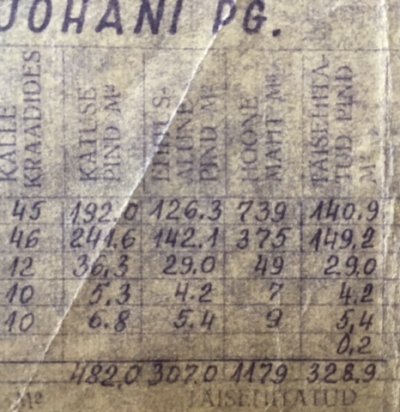 JOHANI PG.
KALLE KRAADIDES
KATUSE PIND M²
EHITUS- ALUNE PIND M²
HOONE MAHT M³
TÄISEHITA- TUD PIND M²
45 192.0 126.3 739 140.9
46 241.6 142.1 375 149,2
12 36,3 29.0 49 29.0
10 5,3 4.2 7 4.2
10 6.8 5.4 9 5,4
0,2
482,0 307.0 1179 328.9
M² TÄISEHITATUD